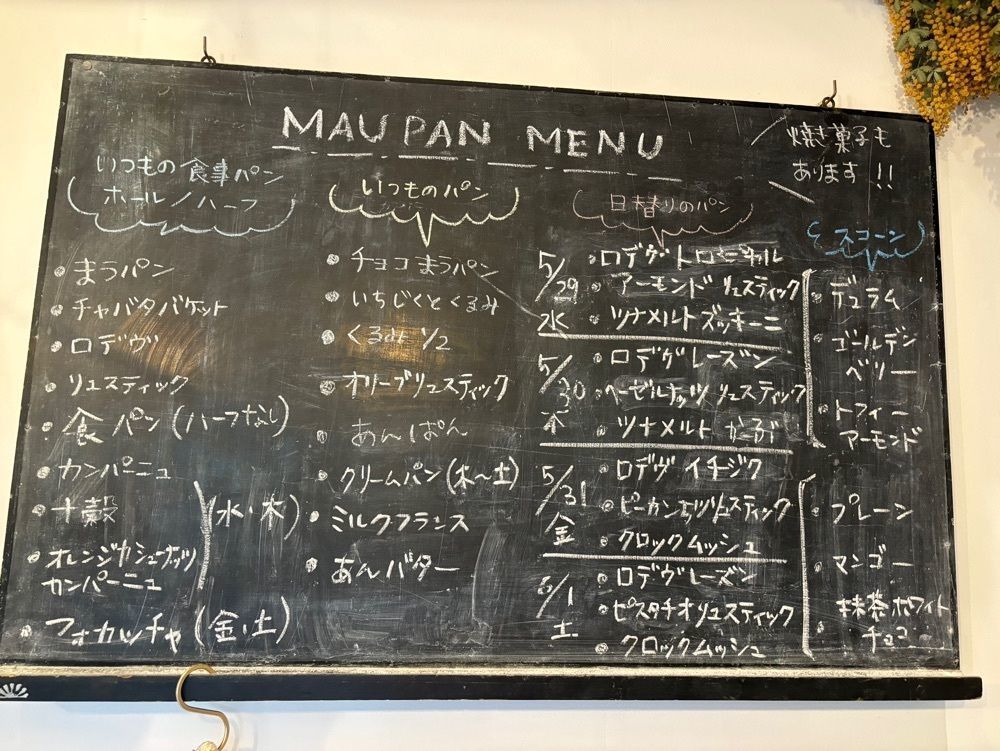 MAU PAN MENU
焼き菓子も
あります !!
いつもの 食事パン
ホール/ハーフ
・まうパン
・チャバタバケット
・ロデヴ
・リュスティック
・食パン (ハーフなし)
・カンパーニュ
・十穀
・オレンジカシューナッツ
カンパーニュ
(水・木)
・フォカッチャ (金・土)
いつものパン
・チョコまうパン
・いちじくとくるみ
・くるみ 1/2
・オリーブリュスティック
・あんぱん
・クリームパン (木〜土)
・ミルクフランス
・あんバター
日替りのパン
5/29
水
・ロデヴ トロピカル
・アーモンド リュスティック
・ツナメルト ズッキーニ
5/30
木
・ロデヴ レーズン
・ヘーゼルナッツ リュスティック
・ツナメルト かぶ
5/31
金
・ロデヴ イチジク
・ピーカンナッツリュスティック
・クロックムッシュ
6/1
土
・ロデヴレーズン
・ピスタチオリュスティック
・クロックムッシュ
スコーン
・デュラム
・ゴールデン
ベリー
・トフィー
アーモンド
・プレーン
・マンゴー
・抹茶ホワイト
チョコ